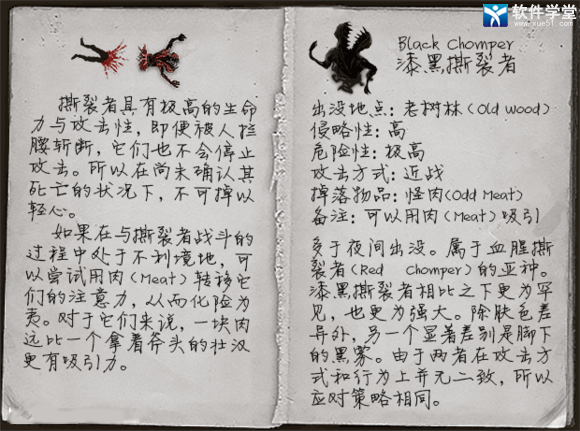 撕裂者具有极高的生命
力与攻击性，即便被人拦
腰斩断，它们也不会停止
攻击。所以在尚未确认其
死亡的状况下，不可掉以
轻心。
如果在与撕裂者战斗的
过程中处于不利境地，可
以尝试用肉（Meat）转移它
们的注意力，从而化险为
夷。对于它们来说，一块肉
远比一个拿着斧头的壮汉
更有吸引力。
软件学堂
www.xue51.com
Black Chomper
漆黑撕裂者
出没地点：老树林（Old Wood）
侵略性：高
危险性：极高
攻击方式：近战
掉落物品：怪肉(Odd Meat)
备注：可以用肉（Meat）吸引
多于夜间出没。属于血腥撕
裂者（Red Chomper）的亚种。
漆黑撕裂者相比之下更为罕
见，也更为强大。除肤色差
异外，另一个显著差别是脚下
的黑雾。由于两者在攻击方
式和行为上并无二致，所以
应对策略相同。